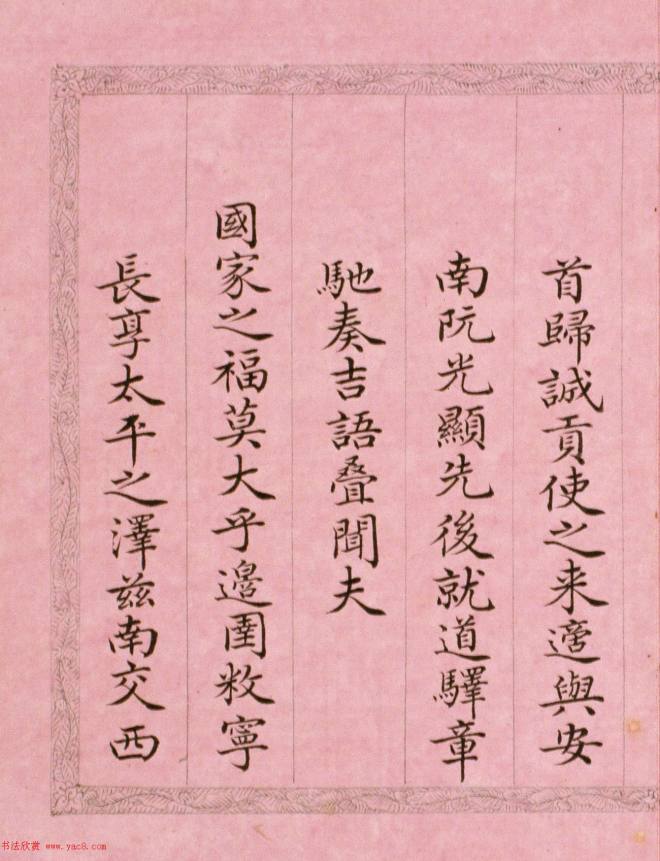 首歸誠貢使之来適與安
南阮光顯先後就道驛章
馳奏吉語疊聞夫
國家之福莫大乎邊圉敉寧
長享太平之澤兹南交西
书法欣赏 www.yac8.com